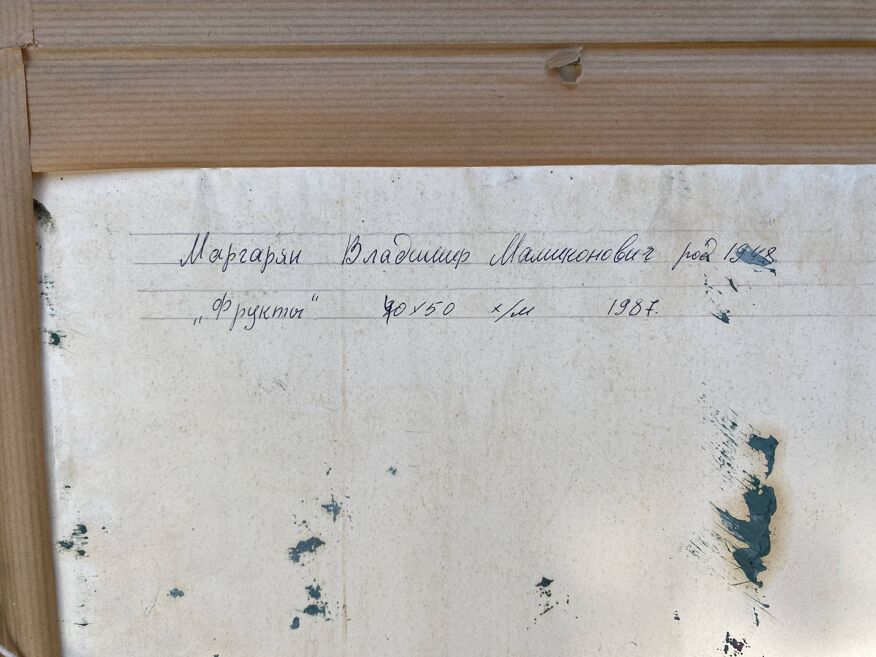 Маргарян Владимир Мамиконович род 1948
„Фрукты“ 40х50 х/м 1987.